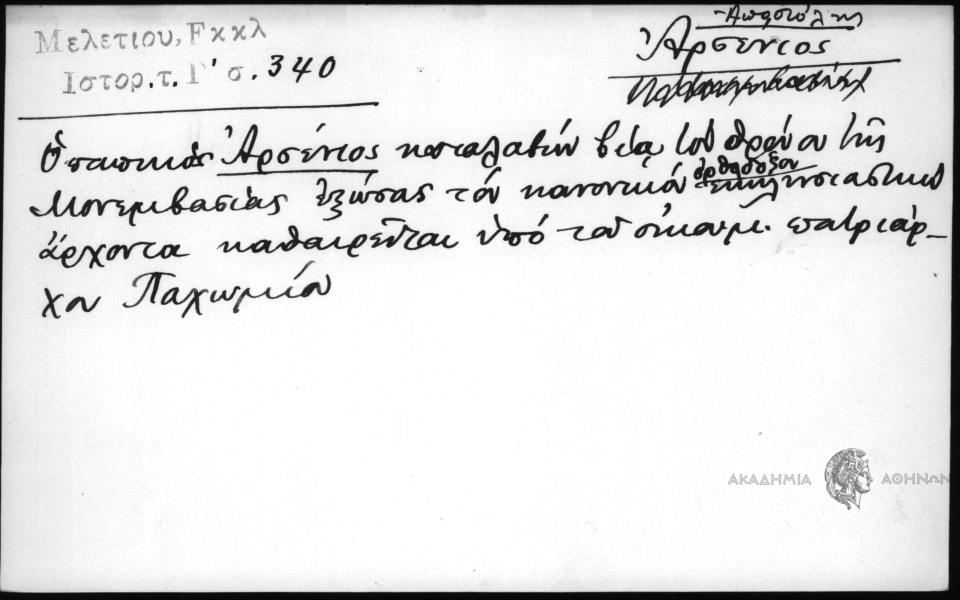 Μελετίου, Εκκλ
Ιστορ. τ. Γ' σ. 340
-Αποστόλης
Ἀρσένιος
Ὁ παπικὸς Ἀρσένιος καταλαβὼν βίᾳ τοῦ θρόνου τῆς
Μονεμβασίας ἐξώσας τὸν κανονικὸν ὀρθόδοξον ἐκκλησιαστικὸ
ἄρχοντα καθαιρεῖται ὑπὸ τοῦ οἰκουμ. πατριάρ-
χου Παχωμίου
ΑΚΑΔΗΜΙΑ ΑΘΗΝΩΝ